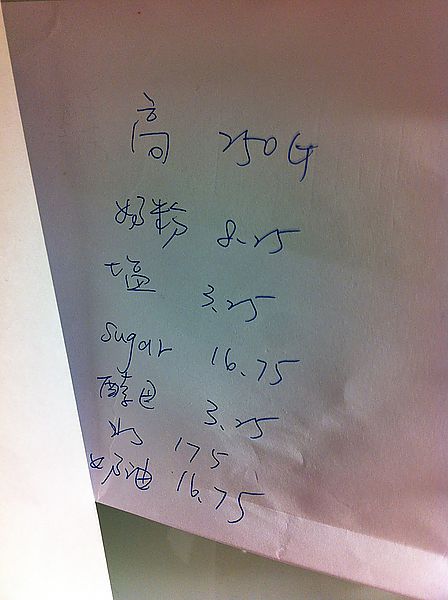 高 250G
奶粉 8.25
塩 3.25
sugar 16.75
酵母 3.25
水 175
奶油 16.75